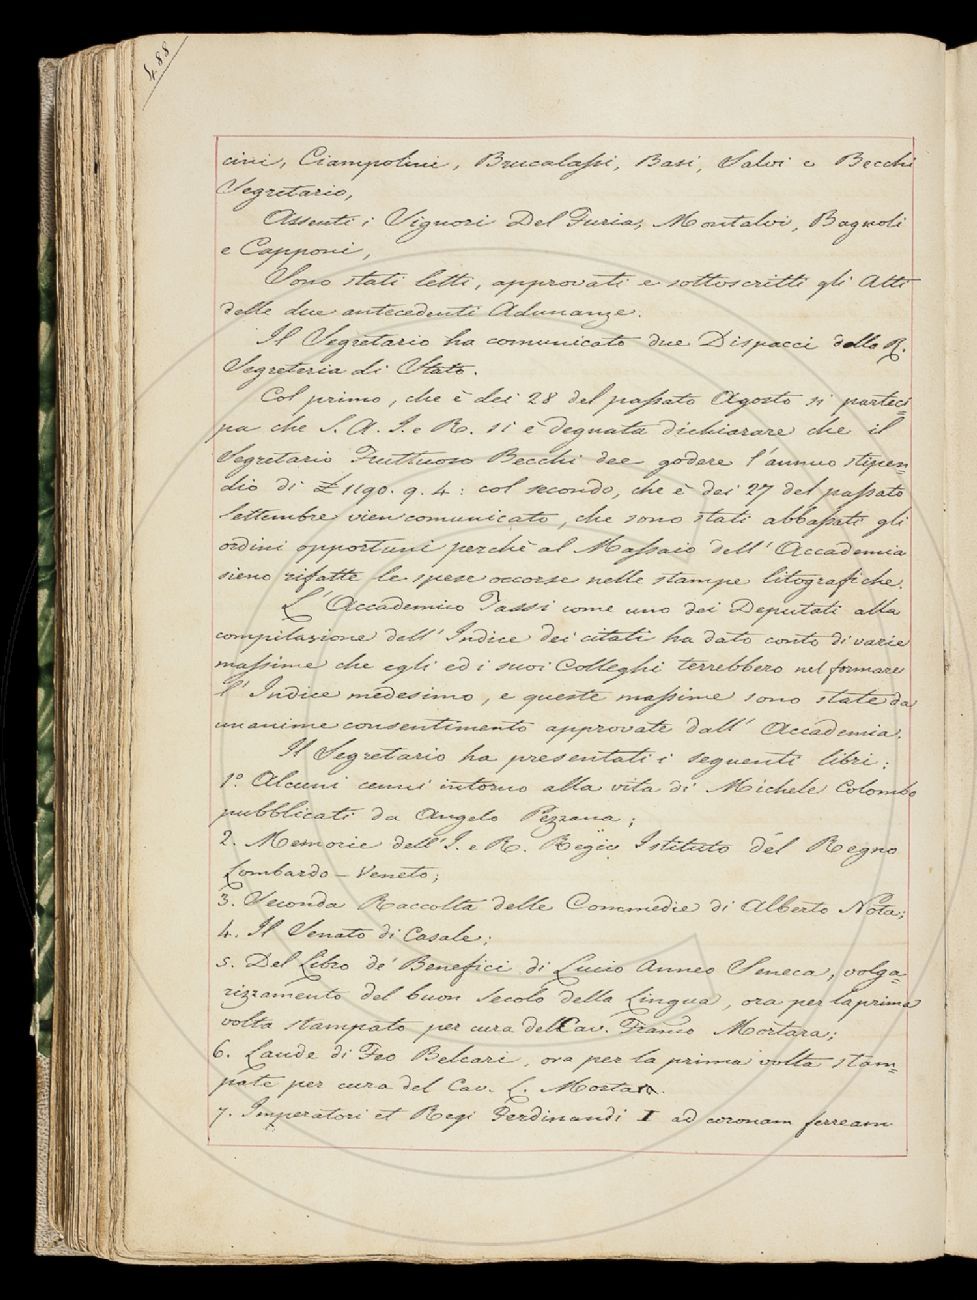 488
cini, Ciampolini, Brucalassi, Basi, Salvi e Becchi
Segretario,
Assenti i Signori Del Furia, Montalvi, Bagnoli
e Capponi,
Sono stati letti, approvati e sottoscritti gli Atti
delle due antecedenti Adunanze.
Il Segretario ha comunicato due Dispacci della R.
Segreteria di Stato.
Col primo, che è dei 28 del passato Agosto si parteci=
pa che S. A. I. e R. si è degnata dichiarare che il
Segretario Fruttuoso Becchi dee godere l'annuo stipen=
dio di £ 1190. 9. 4: col secondo, che è dei 27 del passato
Settembre vien comunicato, che sono stati abbassati gli
ordini opportuni perchè al Massaio dell'Accademia
sieno rifatte le spese occorse nelle stampe litografiche.
L'Accademico Tassi come uno dei Deputati alla
compilazione dell'Indice dei citati ha dato conto di varie
massime che egli ed i suoi Colleghi terrebbero nel formare
l'Indice medesimo, e queste massime sono state da
unanime consentimento approvate dall'Accademia.
Il Segretario ha presentati i seguenti libri:
1.° Alcuni cenni intorno alla vita di Michele Colombo
pubblicati da Angelo Pezzana;
2. Memorie dell'I. e R. Regio Istituto del Regno
Lombardo-Veneto;
3. Seconda Raccolta delle Commedie di Alberto Nota;
4. Il Senato di Casale;
5. Del Libro de' Benefici di Lucio Anneo Seneca, volga=
rizzamento del buon secolo della Lingua, ora per la prima
volta stampato per cura del Cav. Mortara;
6. Laude di Feo Belcari, ora per la prima volta stam=
pate per cura del Cav. L. Mortara.
7. Imperatori et Regi Ferdinandi I ad coronam ferream